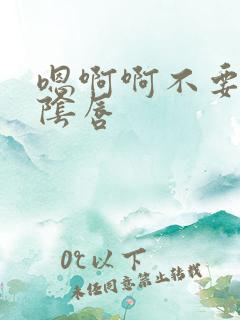 嗯啊啊不要
隂唇
0℃以下
未经同意禁止转载